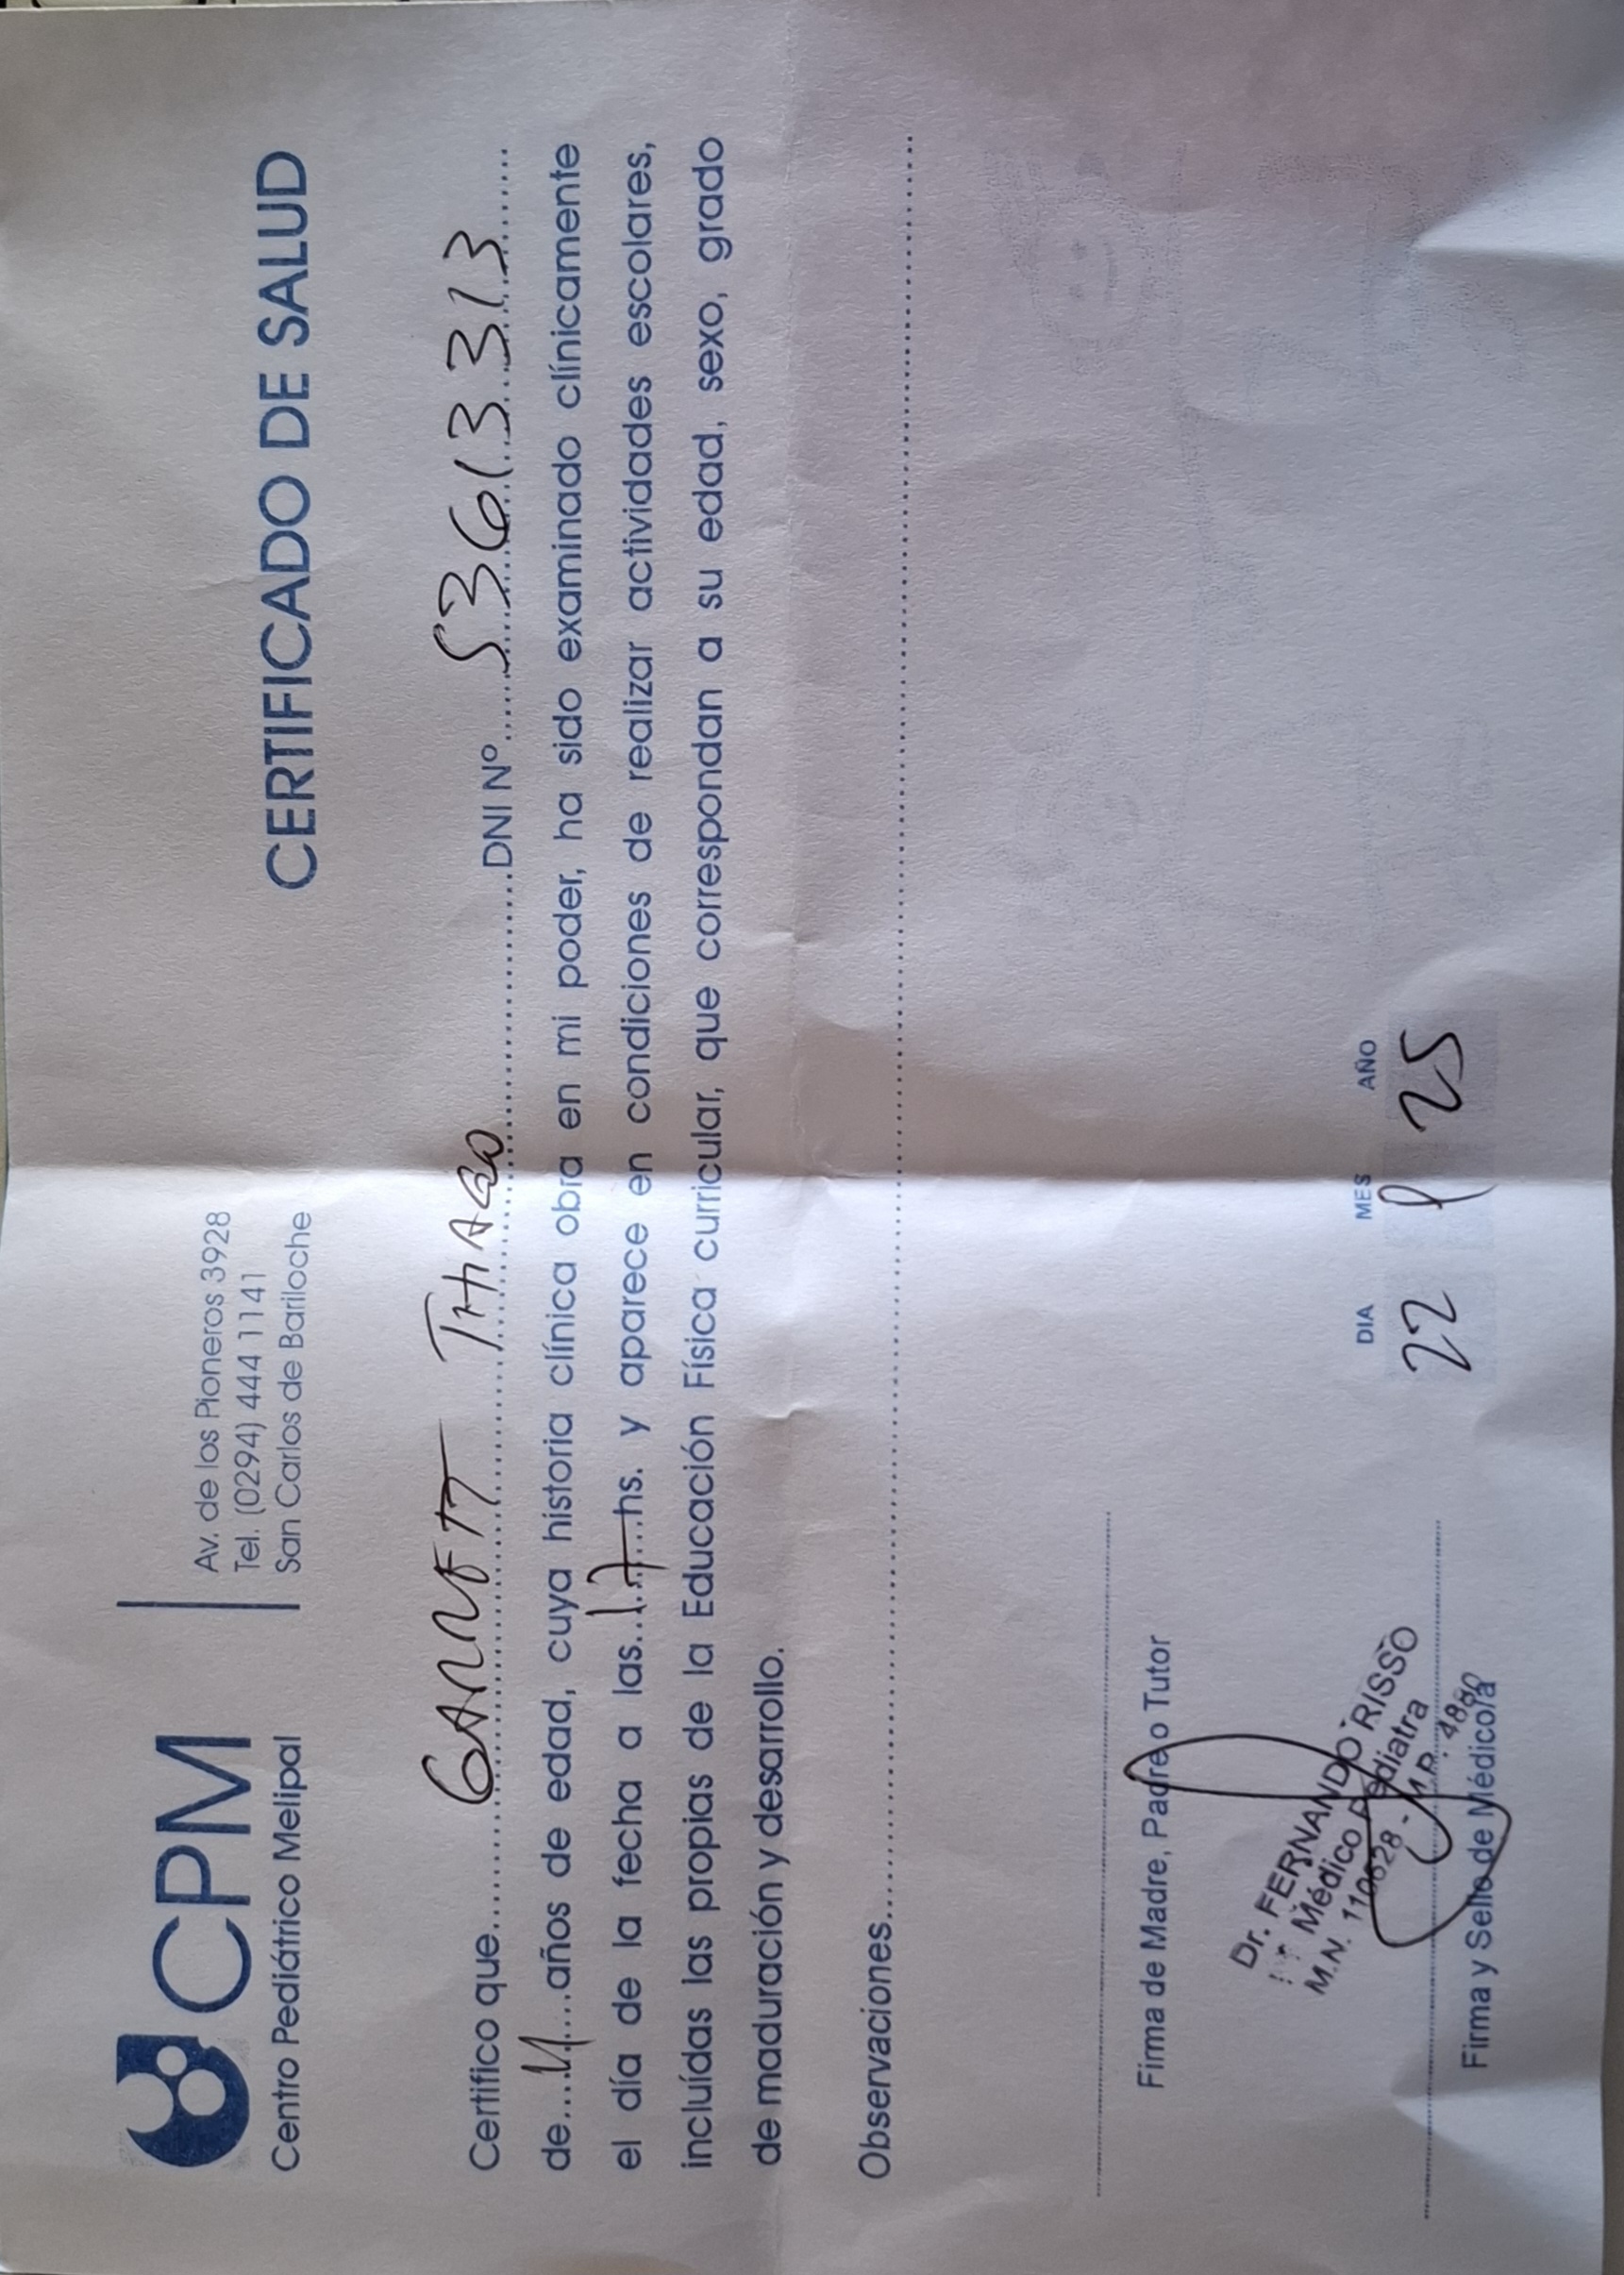 CPM
Centro Pediátrico Melipal
Av. de los Pioneros 3928
Tel. (0294) 444 1141
San Carlos de Bariloche
CERTIFICADO DE SALUD
Certifico que GANNETT THIAGO DNI Nº 53613313
de 11 años de edad, cuya historia clínica obra en mi poder, ha sido examinado clínicamente
el día de la fecha a las 17 hs. y aparece en condiciones de realizar actividades escolares,
incluídas las propias de la Educación Física curricular, que correspondan a su edad, sexo, grado
de maduración y desarrollo.
Observaciones
Firma de Madre, Padre o Tutor
Dr. FERNANDO RISSO
Médico Pediatra
M.N. 110628 - M.P. 4880
Firma y Sello de Médico/a
DIA MES AÑO
22 25